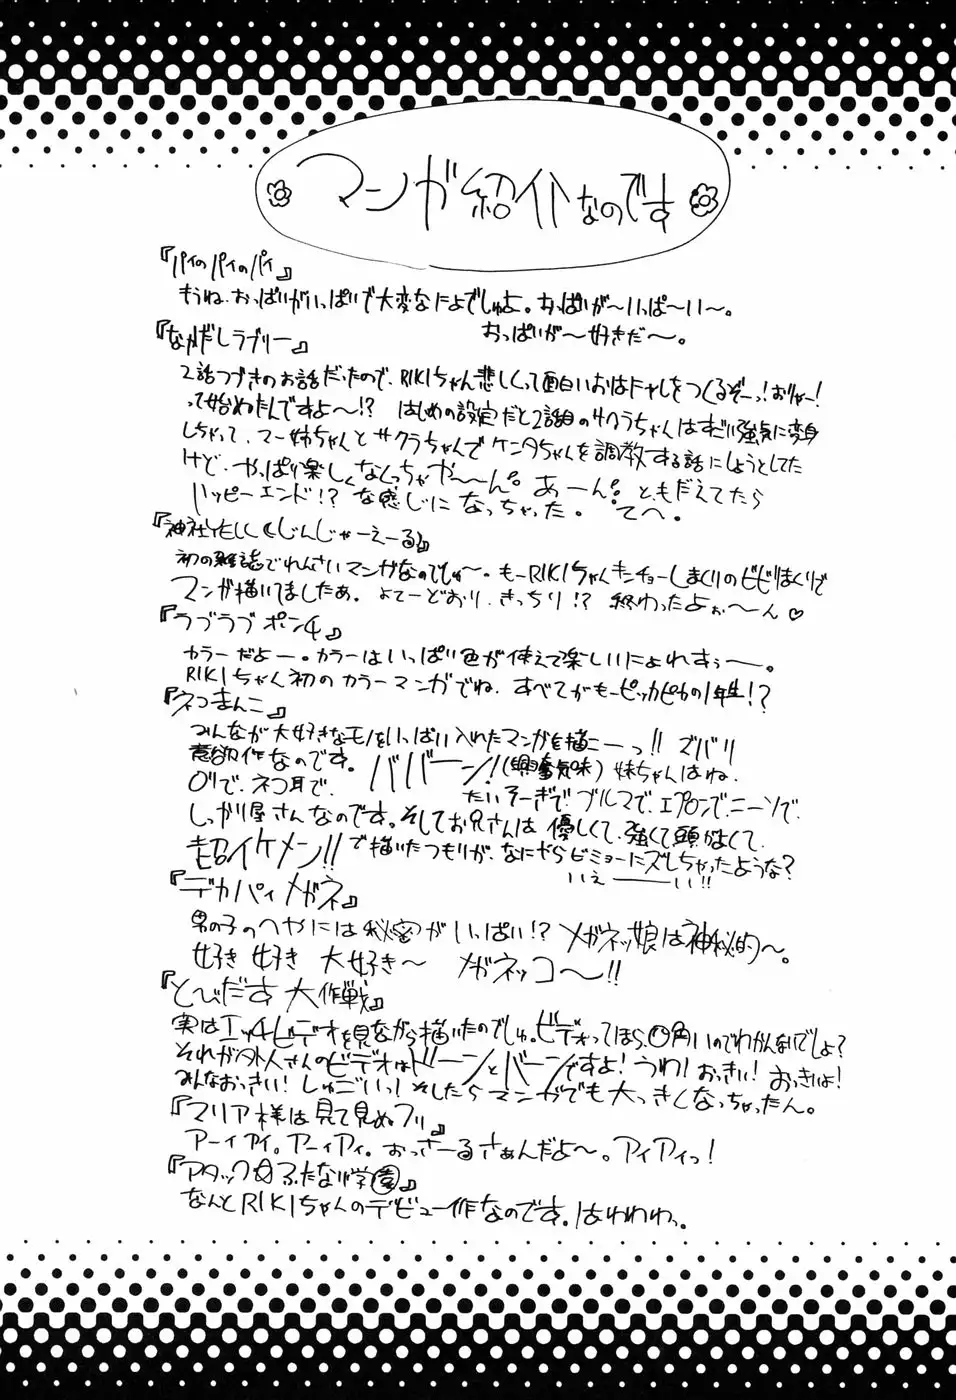 マンガ紹介なのです
『パイのパイのパイ』
もうね、おっぱいがいっぱいで大変なによでしゅよ。おっぱいが〜いっぱ〜い〜。
おっぱいが〜好きだ〜。
『なかだしラブリー』
2話つづきのお話だったので、RIKIちゃん悲しくって面白いおはなしをつくるぞーっ!おりゃー!
って始めたんですよ〜!? はじめの設定だと2話目のサクラちゃんはすごい強気に変身
しちゃって、マー姉ちゃんとサクラちゃんでケンタちゃんを調教する話にしようとしてた
けど、やっぱり楽しくなくっちゃや〜〜ん。あーん。ともだえてたら
ハッピーエンド!? な感じになっちゃった。てへ。
じんじゃーえーる』
初の雑誌でれんさいマンガなのでしゅ〜。もーRIKIちゃんキンチョーしまくりのビビりまくりで
マンガ描いてましたぁ。よてーどおり、きっちり!? 終わったよぉ〜ん♡
『ラブラブポンチ』
カラーだよー。カラーはいっぱい色が使えて楽しいにょれすぅー。
RIKIちゃん初のカラーマンガでね、すべてがもーピッカピカの1年生!?
『ネコまんこ』
みんなが大好きなモノをいっぱい入れたマンガを描こーっ!! ズバリ
意欲作なのです。ババーン!(興奮気味) 妹ちゃんはね、
ネコ耳で、たいそーぎで、ブルマで、エプロンで、ニーソで、
しっかり屋さんなのです。そしてお兄さんは優しくて、強くて頭がよくて、
超イケメン!! で描いたつもりが、なにやらビミョーにズレちゃったような?
いえ――い!!
『デカパイメガネ』
男の子のへやには秘密がいっぱい!? メガネッ娘は神秘的〜。
好き 好き 大好き〜 メガネッコ〜!!
『とびだす大作戦』
実はエッチビデオを見ながら描いたのでしゅ。ビデオってほら、○角いのでわかんないでしょ?
それが外人さんのビデオはドーンとバーンですよ!うわ!おっきい!おっきぃよ!
みんなおっきい!しゅごいっ!そしたらマンガでも大っきくなっちゃったん。
『マリア様は見て見ぬフリ』
アーイアイ。アーイアイ。おっさーるさぁんだよ〜。アイアイっ!
『アタック☆ふたなり学園』
なんとRIKIちゃんのデビュー作なのです。はわわわっ。